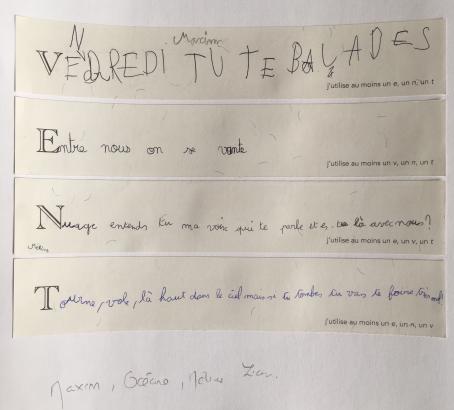 Maxime
VENDREDI TU TE BALADES
j'utilise au moins un e, un n, un t
Entre nous on se vante
j'utilise au moins un v, un n, un t
Nuage entends tu ma voix qui te parle et es tu là avec nous?
j'utilise au moins un e, un v, un t
Tourne, vole, là haut dans le ciel mais si tu tombes tu vas te faire très mal
j'utilise au moins un e, un n, un v
Maxim, Océane,